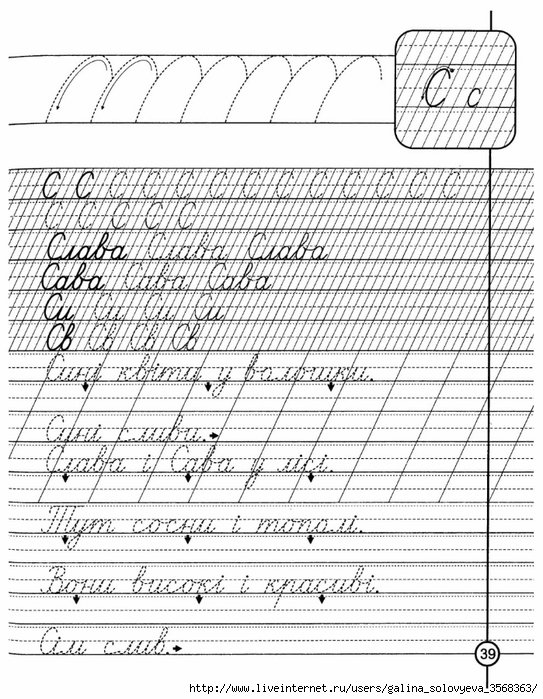 С с
С С С С С С С С С С С С С
С С С С С
Слава Слава Слава
Сава Сава Сава
Си Си Си Си
Св Св Св Св
Сині квіти у волошки.
Сині сливи.
Слава і Сава у лісі.
Тут сосни і тополі.
Вони високі і красиві.
Сім слив.
39
http://www.liveinternet.ru/users/galina_solovyeva_3568363/